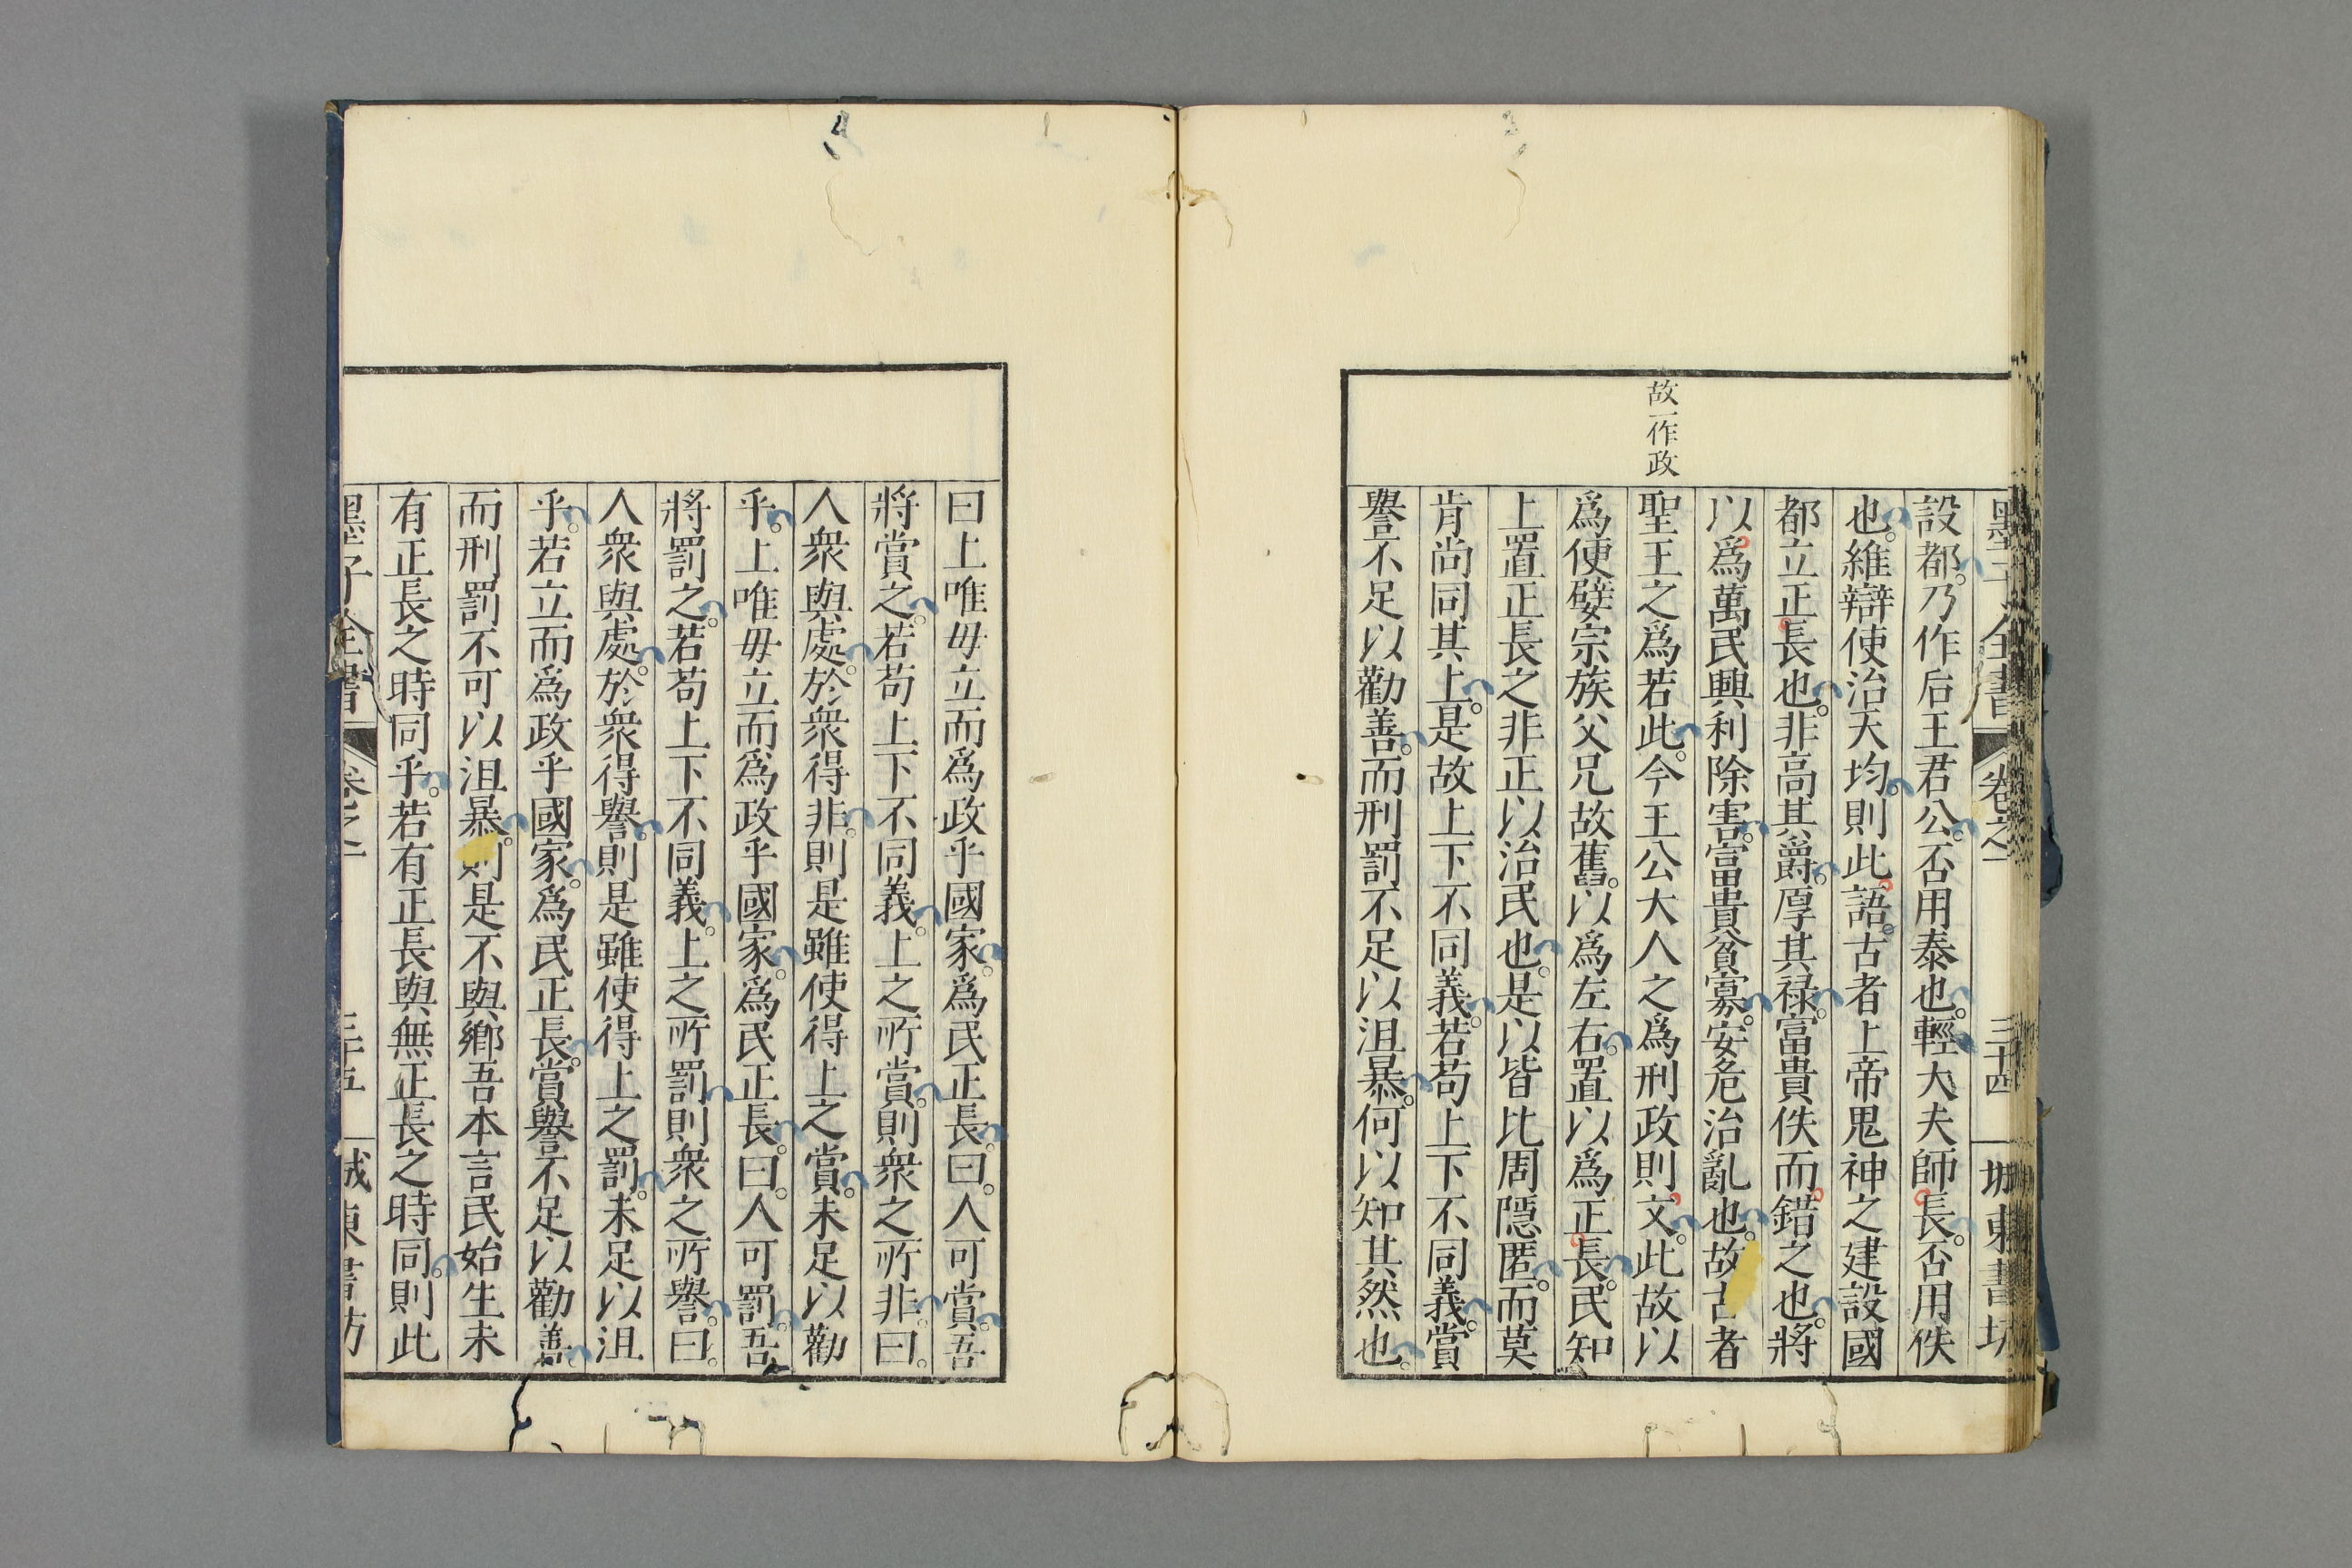 墨子全書 卷之二 三十四 城東書坊
故一作政
設都。乃作后王君公。否用泰也。輕大夫師長。否用佚
也。維辯使治天均。則此語。古者上帝鬼神之建設國
都立正長也。非高其爵。厚其禄。富貴佚而錯之也。將
以爲萬民興利除害。富貴貧寡。安危治亂也。故古者
聖王之爲若此。今王公大人之爲刑政則文。此故以
爲便嬖宗族父兄故舊。以爲左右。置以爲正長。民知
上置正長之非正以治民也。是以皆比周隱匿。而莫
肯尚同其上。是故上下不同義。若苟上下不同義。賞
譽不足以勸善。而刑罰不足以沮暴。何以知其然也。
曰上唯毋立而爲政乎國家。爲民正長。曰。人可賞。吾
將賞之。若苟上下不同義。上之所賞。則衆之所非。曰。
人衆與處。於衆得非。則是雖使得上之賞。未足以勸
乎。上唯毋立而爲政乎國家。爲民正長。曰。人可罰。吾
將罰之。若苟上下不同義。上之所罰。則衆之所譽。曰。
人衆與處。於衆得譽。則是雖使得上之罰。未足以沮
乎。若立而爲政乎國家。爲民正長。賞譽不足以勸善。
而刑罰不可以沮暴。則是不與鄉吾本言民始生未
有正長之時同乎。若有正長與無正長之時同。則此
墨子全書 卷之二 三十五 城東書坊